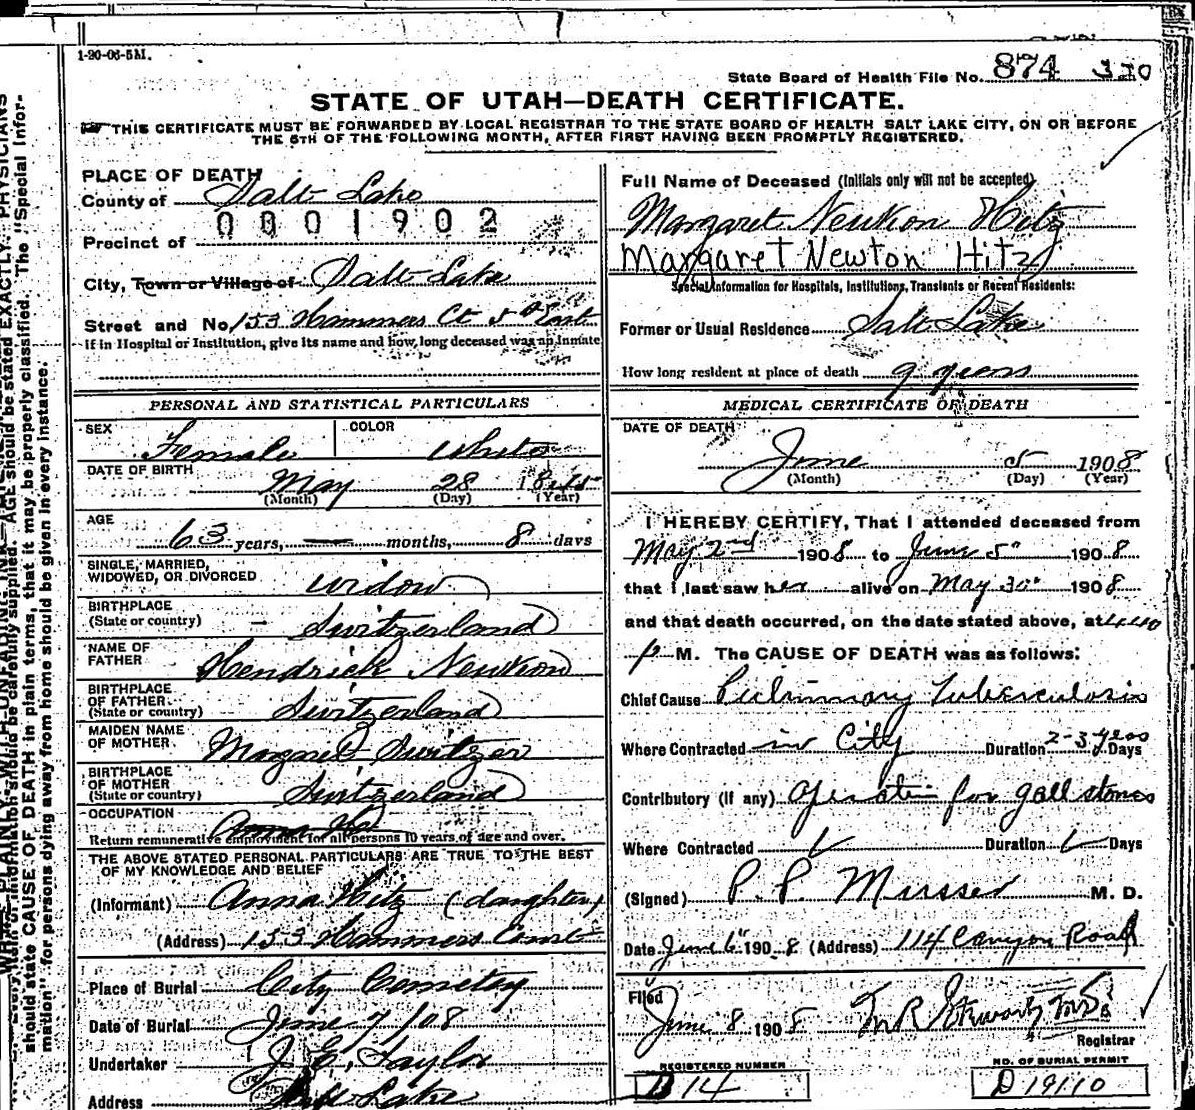 1-20-06-5M.
State Board of Health File No. 874 330
STATE OF UTAH—DEATH CERTIFICATE.
THIS CERTIFICATE MUST BE FORWARDED BY LOCAL REGISTRAR TO THE STATE BOARD OF HEALTH SALT LAKE CITY, ON OR BEFORE
THE 5TH OF THE FOLLOWING MONTH, AFTER FIRST HAVING BEEN PROMPTLY REGISTERED.
PLACE OF DEATH
County of Salt Lake
0001902
Precinct of
City, Town or Village of Salt Lake
Street and No. 153 Hammers Ct 5th East
if in Hospital or Institution, give its name and how long deceased was an inmate
PERSONAL AND STATISTICAL PARTICULARS
SEX Female COLOR White
DATE OF BIRTH May 28 1845
(Month) (Day) (Year)
AGE 63 years, — months, 8 days
SINGLE, MARRIED,
WIDOWED, OR DIVORCED widow
BIRTHPLACE
(State or country) Switzerland
NAME OF
FATHER Hendrick Newkon
BIRTHPLACE
OF FATHER
(State or country) Switzerland
MAIDEN NAME
OF MOTHER Margret Switzer
BIRTHPLACE
OF MOTHER
(State or country) Switzerland
OCCUPATION
Return remunerative employment for all persons 10 years of age and over.
THE ABOVE STATED PERSONAL PARTICULARS ARE TRUE TO THE BEST
OF MY KNOWLEDGE AND BELIEF
(Informant) Anna Hitz (daughter)
(Address) 153 Hammers Court
Place of Burial City Cemetery
Date of Burial June 7/08
Undertaker J. E. Taylor
Address Salt Lake
Full Name of Deceased (Initials only will not be accepted)
Margaret Newkon Hitz
Margaret Newton Hitz
Special Information for Hospitals, Institutions, Transients or Recent Residents:
Former or Usual Residence Salt Lake
How long resident at place of death 9 years
MEDICAL CERTIFICATE OF DEATH
DATE OF DEATH
June 5 1908
(Month) (Day) (Year)
I HEREBY CERTIFY, That I attended deceased from
May 2nd 1908 to June 5" 1908
that I last saw her alive on May 30" 1908
and that death occurred, on the date stated above, at
P M. The CAUSE OF DEATH was as follows:
Chief Cause Pulmonary Tuberculosis
Where Contracted in City Duration 2-3 years Days
Contributory (if any) operation for gall stones
Where Contracted Duration Days
(Signed) P. P. Musser M. D.
Date June 6" 1908 (Address) 114 Canyon Road
Filed
June 8 1908
Registrar
REGISTERED NUMBER
D 14
NO. OF BURIAL PERMIT
D 19110
should state CAUSE OF DEATH in plain terms, that it may be properly classified. The "Special Infor-
mation" for persons dying away from home should be given in every instance.